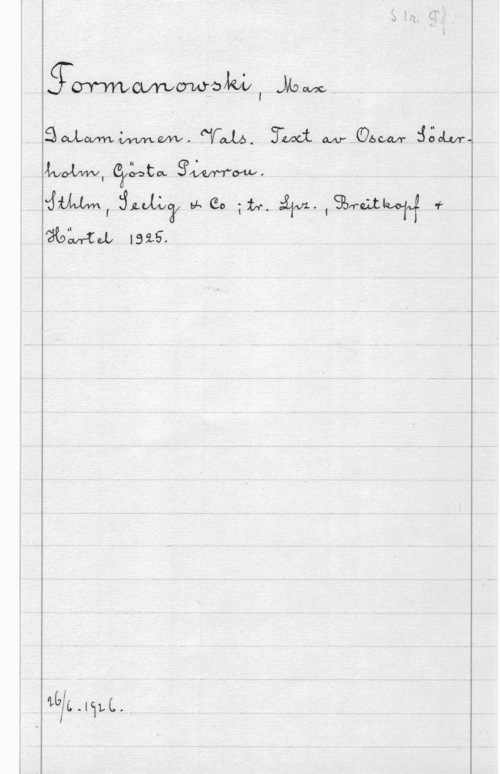 Formanowski, Max
Dalaminnen. Vals. Text av Oscar Söder-
holm, Gösta Pierrou.
Sthlm, Seelig & Co ; tr. Lpz. , Breitkopf &
Härtel 1925.
26/6.1926.